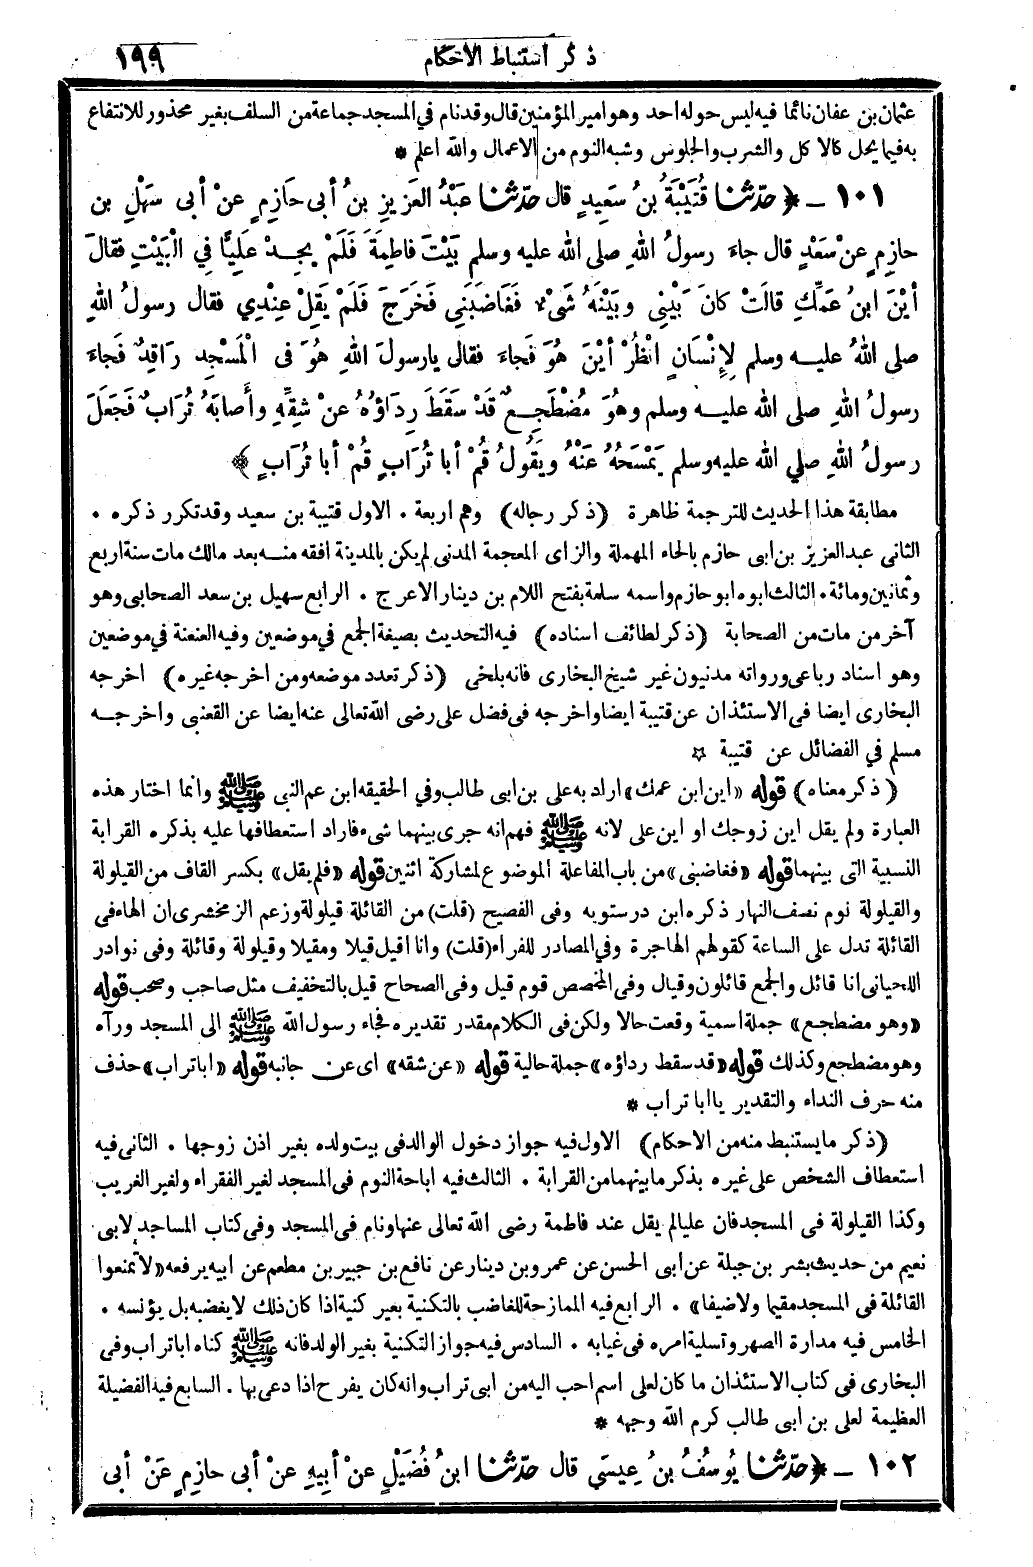 ذكر استنباط الأحكام ١٩٩
عثمان بن عفان نائما فيه ليس حوله احد وهو امير المؤمنين قال وقد نام في المسجد جماعة من السلف بغير محذور للانتفاع
به فيما يحل كالاكل والشرب والجلوس وشبه النوم من الاعمال والله اعلم *
١٠١ ـ ﴿ حدّثنا قُتَيْبَةُ بنُ سَعِيدٍ قال حدّثنا عَبْدُ العَزِيزِ بنُ أبى حَازِمٍ عنْ أبى سَهْلِ بن
حازِمٍ عنْ سَعْدٍ قال جاءَ رسولُ اللهِ صلى الله عليه وسلم بَيْتَ فاطِمَةَ فَلَمْ يجِدْ عَلِيًّا فِي الْبَيْتِ فقالَ
أيْنَ ابنُ عَمِّكِ قالَتْ كانَ بَيْنِى وبَيْنَهُ شَىْءٌ فَغَاضَبَنِي فَخَرَجَ فَلَمْ يَقِلْ عِنْدِي فقال رسولُ اللهِ
صلى اللهُ عليه وسلم لِإِنْسَانٍ انْظُرْ أيْنَ هُوَ فَجاءَ فقال يارسولَ اللهِ هُوَ فى الْمَسْجِدِ رَاقِدٌ فَجاءَ
رسولُ اللهِ صلى الله عليه وسلم وهُوَ مُضْطَجِعٌ قَدْ سَقَطَ رِدَاؤُهُ عنْ شِقِّهِ وأَصابَهُ تُرَابٌ فَجَعَلَ
رسولُ اللهِ صلى الله عليه وسلم يَمْسَحُهُ عَنْهُ ويَقُولُ قُمْ أبا تُرَابٍ قُمْ أبا تُرَابٍ ﴾
مطابقة هذا الحديث للترجمة ظاهرة (ذكر رجاله) وهم اربعة . الاول قتيبة بن سعيد وقد تكرر ذكره .
الثانى عبد العزيز بن ابى حازم بالحاء المهملة والزاى المعجمة المدنى لم يكن بالمدينة افقه منه بعد مالك مات سنة اربع
وثمانين ومائة . الثالث ابوه ابو حازم واسمه سلمة بفتح اللام بن دينار الاعرج . الرابع سهيل بن سعد الصحابى وهو
آخر من مات من الصحابة (ذكر لطائف اسناده) فيه التحديث بصيغة الجمع في موضعين وفيه العنعنة في موضعين
وهو اسناد رباعى ورواته مدنيون غير شيخ البخارى فانه بلخى (ذكر تعدد موضعه ومن اخرجه غيره) اخرجه
البخارى ايضا فى الاستئذان عن قتيبة ايضا واخرجه فى فضل على رضى الله تعالى عنه ايضا عن القعنبى واخرجه
مسلم في الفضائل عن قتيبة ☆
(ذكر معناه) قوله «اين ابن عمك» اراد به على بن ابى طالب وفي الحقيقه ابن عم النبى ﷺ وانما اختار هذه
العبارة ولم يقل اين زوجك او اين على لانه ﷺ فهم انه جرى بينهما شىء فاراد استعطافها عليه بذكره القرابة
النسبية التى بينهما قوله «فغاضبنى» من باب المفاعلة الموضوع لمشاركة اثنين قوله «فلم يقل» بكسر القاف من القيلولة
والقيلولة نوم نصف النهار ذكره ابن درستويه وفى الفصيح (قلت) من القائلة قيلولة وزعم الزمخشرى ان الهاء فى
القائلة تدل على الساعة كقولهم الهاجرة وفي المصادر للفراء (قلت) وانا اقيل قيلا ومقيلا وقيلولة وقائلة وفى نوادر
اللحيانى انا قائل والجمع قائلون وقيال وفى المخصص قوم قيل وفى الصحاح قيل بالتخفيف مثل صاحب وصحب قوله
«وهو مضطجع» جملة اسمية وقعت حالا ولكن فى الكلام مقدر تقديره فجاء رسول الله ﷺ الى المسجد ورآه
وهو مضطجع وكذلك قوله «قد سقط رداؤه» جملة حالية قوله «عن شقه» اى عن جانبه قوله «اباتراب» حذف
منه حرف النداء والتقدير يا ابا تراب *
(ذكر ما يستنبط منه من الاحكام) الاول فيه جواز دخول الوالد فى بيت ولده بغير اذن زوجها . الثانى فيه
استعطاف الشخص على غيره بذكر ما بينهما من القرابة . الثالث فيه اباحة النوم فى المسجد لغير الفقراء ولغير الغريب
وكذا القيلولة فى المسجد فان عليا لم يقل عند فاطمة رضى الله تعالى عنها ونام فى المسجد وفى كتاب المساجد لابى
نعيم من حديث بشر بن جبلة عن ابى الحسن عن عمرو بن دينار عن نافع بن جبير بن مطعم عن ابيه يرفعه «لا تمنعوا
القائلة فى المسجد مقيما ولا ضيفا» . الرابع فيه الممازحة للغاضب بالتكنية بغير كنية اذا كان ذلك لا يغضبه بل يؤنسه .
الخامس فيه مدارة الصهر وتسلية امره فى غيابه . السادس فيه جواز التكنية بغير الولد فانه ﷺ كناه اباتراب وفى
البخارى فى كتاب الاستئذان ما كان لعلى اسم احب اليه من ابى تراب وانه كان يفرح اذا دعى بها . السابع فيه الفضيلة
العظيمة لعلى بن ابى طالب كرم الله وجهه *
١٠٢ ـ ﴿ حدّثنا يُوسُفُ بنُ عِيسَى قال حدّثنا ابنُ فُضَيْلٍ عنْ أبِيهِ عنْ أبى حازِمٍ عَنْ أبى